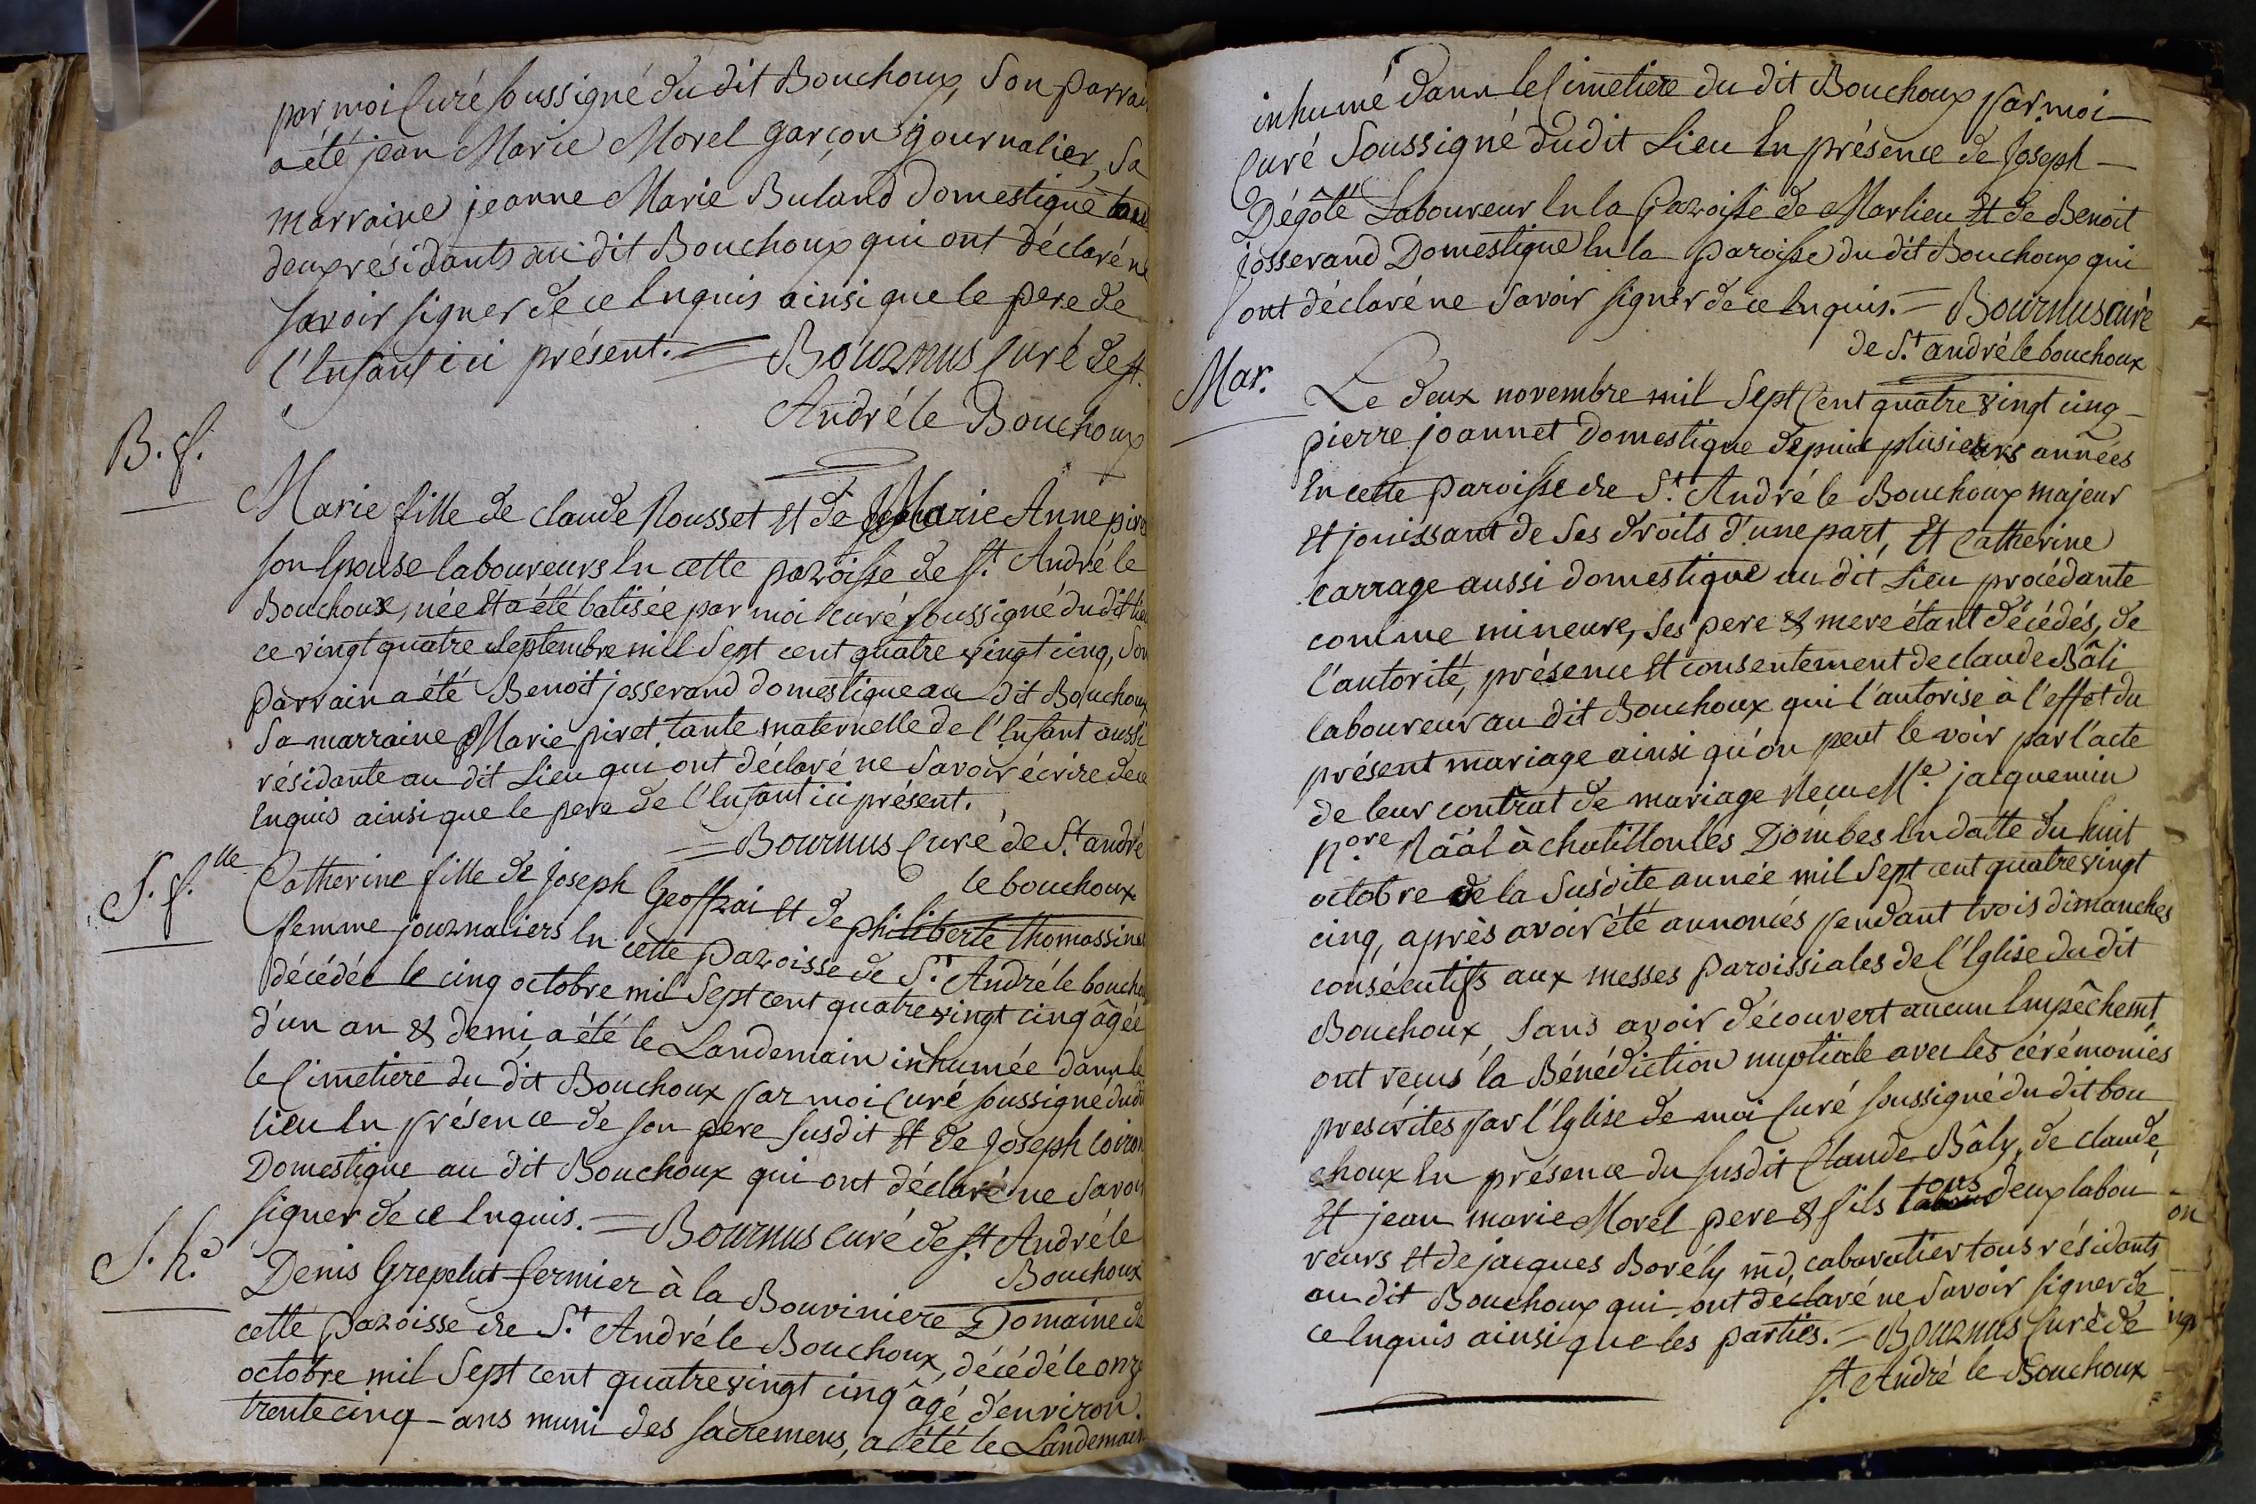 par moi Curé soussigné du dit Bouchoux, Son parrai
a été jean Marie Morel garçon journalier, Sa
marraine jeanne Marie Buland Domestique tous
deux résidants au dit Bouchoux qui ont déclaré ne
savoir signer de ce Enquis ainsi que le pere de
l'Enfant ici présent. = Bournus Curé de st.
André le Bouchoux
B. f.
Marie fille de claude Rousset Et de Marie Anne pire
son Epouse laboureurs En cette paroisse de st. André le
Bouchoux, née Et a été batisée par moi curé soussigné du dit lieu
ce vingt quatre septembre mil Sept cent quatre vingt cinq, Son
parrain a été Benoit josserand domestique au dit Bouchoux
Sa marraine Marie piret tante maternelle de l'Enfant aussi
résidante au dit Lieu qui ont déclaré ne Savoir écrire de ce
Enquis ainsi que le pere de l'Enfant ici présent.
= Bournus Curé de St. andré
le bouchoux
S. f.lle
Catherine fille de Joseph Geoffrai Et de philiberte thomassin sa
femme journaliers En cette paroisse de St. André le boucho
décédée le cinq octobre mil Sept cent quatre vingt cinq âgée
d'un an & demi, a été le Landemain inhumée dans le
le Cimetiere du dit Bouchoux par moi Curé soussigné du dit
lieu En présence de son pere susdit Et de Joseph Coiron
Domestique au dit Bouchoux qui ont déclaré ne Savoir
signer de ce Enquis. = Bournus curé de st. André le
Bouchoux
S. h.e
Denis Grepelut fermier à la Bouviniere Domaine de
cette paroisse de S.t André le Bouchoux, décédé le onze
octobre mil Sept cent quatre vingt cinq âgé d'environ
trente cinq - ans muni des sacremens, a été le Landemain
inhumé dans le Cimetiere du dit Bouchoux par moi
Curé Soussigné du dit Lieu En présence de Joseph
Dégôlé Laboureur En la Paroisse de Marlieu Et de Benoit
josserand Domestique En la Paroisse du dit Bouchoux qui
ont déclaré ne Savoir signer de ce Enquis. = Bournus curé
de S.t andré le bouchoux
Mar.
Le deux novembre mil Sept Cent quatre vingt cinq
pierre joannet Domestique depuis plusieurs années
En cette paroisse de S.t André le Bouchoux majeur
Et jouissant de Ses droits d'une part, Et Catherine
Carrage aussi domestique au dit Lieu procédante
comme mineure, Ses pere & mere étant décédés, de
l'autorité, présence Et consentement de claude Bâli
laboureur au dit Bouchoux qui l'autorise à l'effet du
présent mariage ainsi qu'on peut le voir par l'acte
de leur contrat de mariage Recu M.e jacquemin
N.ore Rââl à chatillon les Dombes En datte du huit
octobre de la Susdite année mil Sept cent quatre vingt
cinq, après avoir été annoncés pendant trois dimanches
consécutifs aux messes paroissiales de l'Eglise du dit
Bouchoux, sans avoir découvert aucun Empêchemt
ont reçus la Bénédiction nuptiale avec les cérémonies
prescrites par l'Eglise de moi Curé soussigné du dit bou
choux En présence du susdit Claude Bâly, de claude,
Et jean marie Morel pere & fils tous deux labou
reurs Et de jacques Borély md, cabaratier tous résidants
au dit Bouchoux qui ont declaré ne Savoir signer de
ce Enquis ainsi que les parties. = Bournus Curé de
st. André le Bouchoux